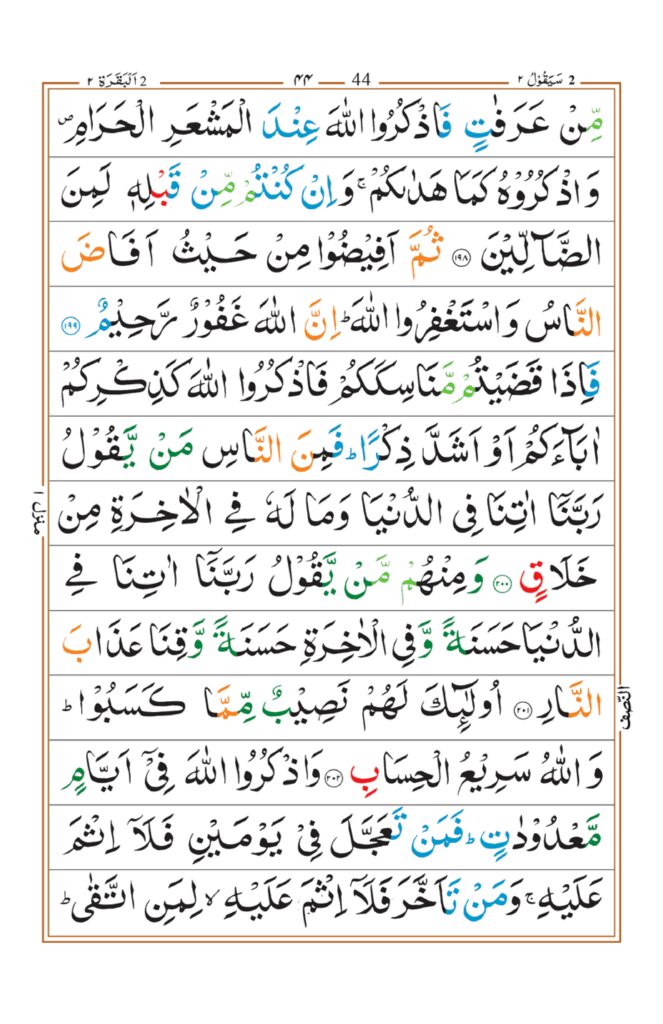 2 سَيَقُوْلُ ٢ 44 ۴۴ 2 اَلْبَقَرَة ٢
مِّنْ عَرَفٰتٍ فَاذْكُرُوا اللّٰهَ عِنْدَ الْمَشْعَرِ الْحَرَامِ ۪
وَاذْكُرُوْهُ كَمَا هَدٰىكُمْ ۚ وَاِنْ كُنْتُمْ مِّنْ قَبْلِهٖ لَمِنَ
الضَّآلِّيْنَ ۝١٩٨ ثُمَّ اَفِيْضُوْا مِنْ حَيْثُ اَفَاضَ
النَّاسُ وَاسْتَغْفِرُوا اللّٰهَ ؕ اِنَّ اللّٰهَ غَفُوْرٌ رَّحِيْمٌ ۝١٩٩
فَاِذَا قَضَيْتُمْ مَّنَاسِكَكُمْ فَاذْكُرُوا اللّٰهَ كَذِكْرِكُمْ
اٰبَآءَكُمْ اَوْ اَشَدَّ ذِكْرًا ؕ فَمِنَ النَّاسِ مَنْ يَّقُوْلُ
رَبَّنَآ اٰتِنَا فِى الدُّنْيَا وَمَا لَهٗ فِى الْاٰخِرَةِ مِنْ
خَلَاقٍ ۝٢٠٠ وَمِنْهُمْ مَّنْ يَّقُوْلُ رَبَّنَآ اٰتِنَا فِى
الدُّنْيَا حَسَنَةً وَّفِى الْاٰخِرَةِ حَسَنَةً وَّقِنَا عَذَابَ
النَّارِ ۝٢٠١ اُولٰٓئِكَ لَهُمْ نَصِيْبٌ مِّمَّا كَسَبُوْا ؕ
وَاللّٰهُ سَرِيْعُ الْحِسَابِ ۝٢٠٢ وَاذْكُرُوا اللّٰهَ فِىْٓ اَيَّامٍ
مَّعْدُوْدٰتٍ ؕ فَمَنْ تَعَجَّلَ فِىْ يَوْمَيْنِ فَلَآ اِثْمَ
عَلَيْهِ ۚ وَمَنْ تَاَخَّرَ فَلَآ اِثْمَ عَلَيْهِ ۙ لِمَنِ اتَّقٰى ؕ
منزل ١
النّصف